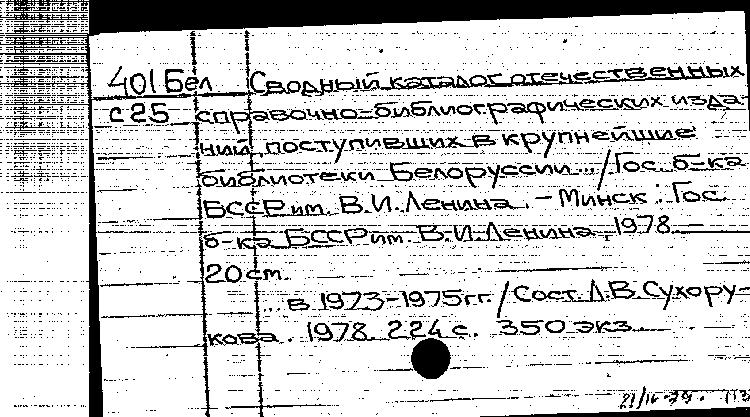 401 Бел Сводный каталог отечественных
с 25 справочно-библиографических изда-
ний, поступивших в крупнейшие
библиотеки Белоруссии... / Гос. б-ка
БССР им. В.И.Ленина. - Минск : Гос.
б-ка БССР им. В.И.Ленина, 1978.
20 см.
...в 1973-1975гг. / Сост. Л.В.Сухору-
кова. 1978. 224 с. 350 экз.